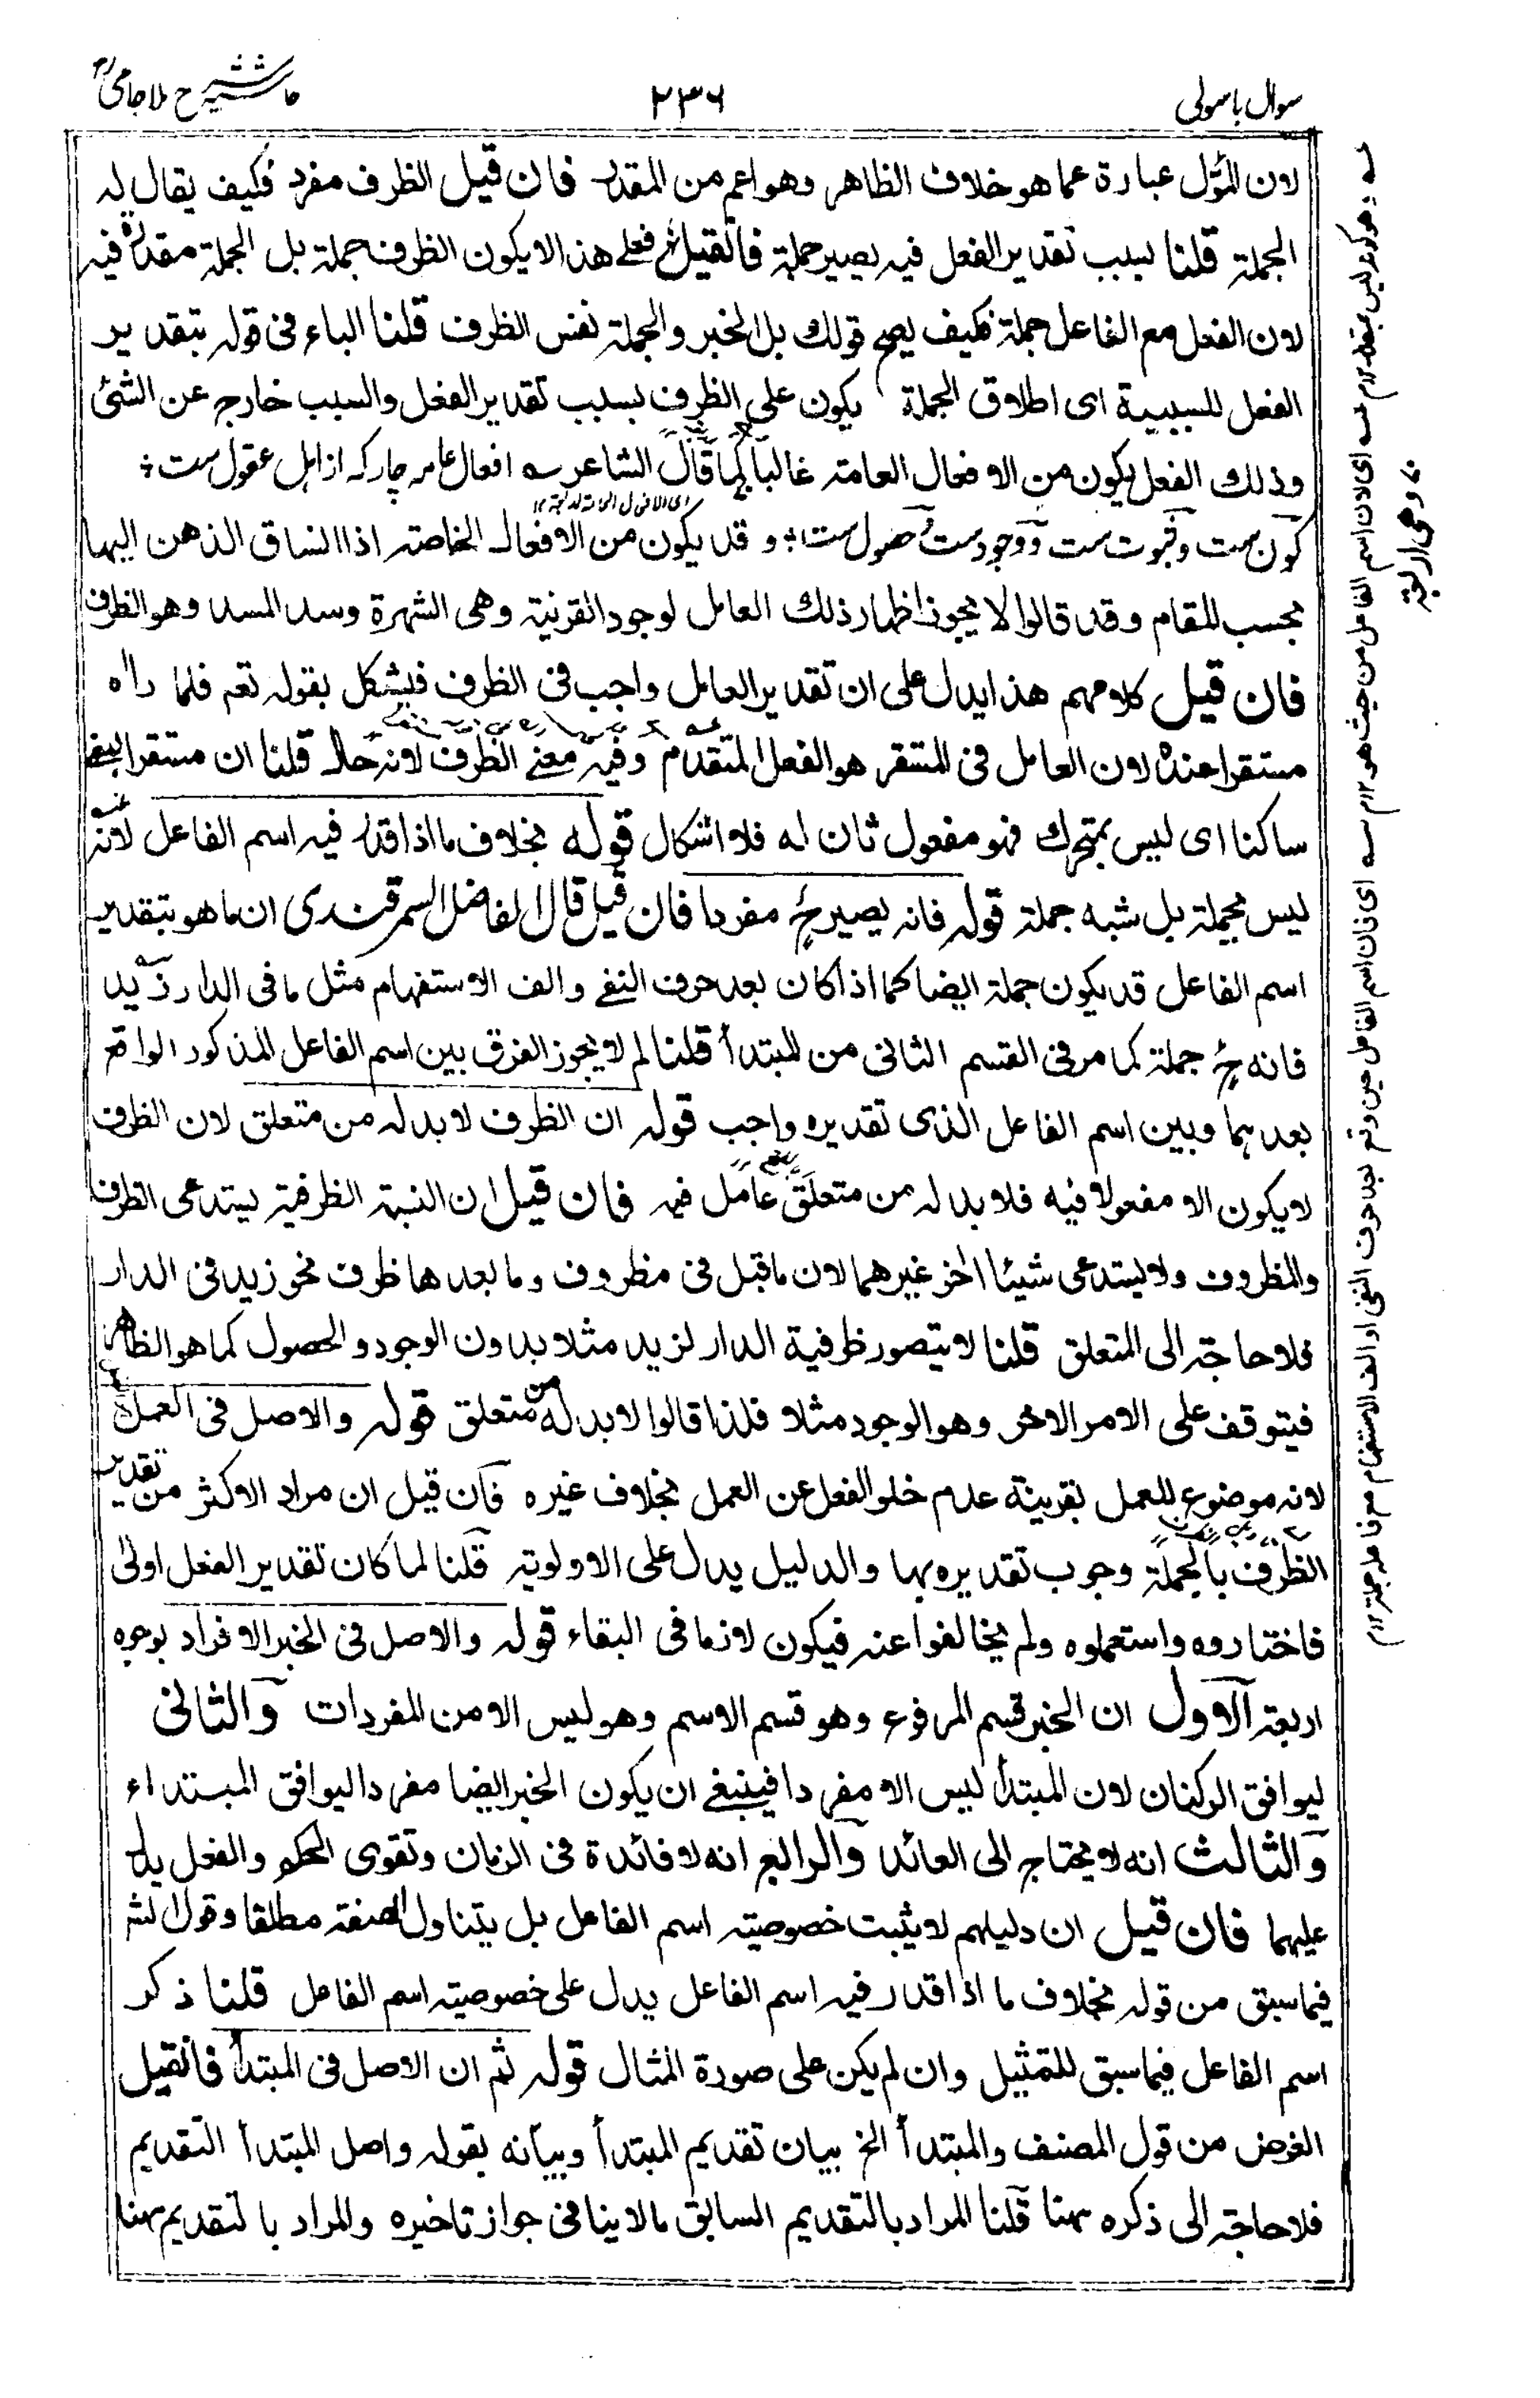 سوال باسولی
۲۳۶
حاشیه شرح ملا جامیؒ
لان المؤل عبارة عما هو خلاف الظاهر وهو اعم من المقدر فان قيل الظرف مفرد فكيف يقال له
الجملة قلنا بسبب تقدير الفعل فيه يصير جملة فانقيل فعلے هذا لا يكون الظرف جملة بل الجملة مقدرة فيه
لان الفعل مع الفاعل جملة فكيف يصح قولك بل الخبر والجملة نفس الظرف قلنا الباء فى قوله بتقدير
الفعل للسببية اى اطلاق الجملة يكون على الظرف بسبب تقدير الفعل والسبب خارج عن الشئ
وذلك الفعل يكون من الافعال العامة غالبا كما قال الشاعر ؎ افعال عامه چار كه از اهل عقول ست ؛
كون ست وثبوت ست ووجودست حصول ست ؛ وقد يكون من الافعال الخاصة اذا انساق الذهن اليها
بحسب المقام وقد قالوا لا يجوز اظهار ذلك العامل لوجود القرينة وهى الشهرة وسد المسد وهو الظرف
فان قيل كلامهم هذا يدل على ان تقدير العامل واجب فى الظرف فيشكل بقوله تعم فلما راه
مستقرا عنده لان العامل فى المستقر هو الفعل المتقدم وفيه معنے الظرف لانه حال قلنا ان مستقرا بمعنے
ساكنا اى ليس بمتحرك فهو مفعول ثان له فلا اشكال قوله بخلاف ما اذا قدر فيه اسم الفاعل لانه
ليس بجملة بل شبه جملة قوله فانه يصير ح مفردا فان قيل قال الفاضل السمرقندى ان ما هو بتقدير
اسم الفاعل قد يكون جملة ايضا كما اذا كان بعد حرف النفے والف الاستفهام مثل ما فى الدار زيد
فانه ح جملة كما مر فى القسم الثانى من المبتدأ قلنا لم لا يجوز الفرق بين اسم الفاعل المذكور الواقع
بعدهما وبين اسم الفاعل الذى تقديره واجب قوله ان الظرف لا بد له من متعلق لان الظرف
لا يكون الا مفعولا فيه فلا بد له من متعلق عامل فيه فان قيل ان النسبة الظرفية يستدعى الظرف
والمظروف ولا يستدعى شيئا اخر غيرهما لان ما قبل فى مظروف وما بعدها ظرف نحو زيد فى الدار
فلا حاجة الى المتعلق قلنا لا يتصور ظرفية الدار لزيد مثلا بدون الوجود والحصول كما هو الظاهر
فيتوقف على الامر الاخر وهو الوجود مثلا فلذا قالوا لا بد له من متعلق قوله والاصل فى العمل
لانه موضوع للعمل بقرينة عدم خلو الفعل عن العمل بخلاف غيره فان قيل ان مراد الاكثر من تقدير
الظرف بالجملة وجوب تقديره بها والدليل يدل على الاولوية قلنا لما كان تقدير الفعل اولى
فاختاروه واستعملوه ولم يخالفوا عنه فيكون لازما فى البقاء قوله والاصل فى الخبر الافراد بوجوه
اربعة الاول ان الخبر قسم المرفوع وهو قسم الاسم وهو ليس الا من المفردات والثانى
ليوافق الركنان لان المبتدأ ليس الا مفردا فينبغے ان يكون الخبر ايضا مفردا ليوافق المبتداء
والثالث انه لا يحتاج الى العائد والرابع انه لا فائدة فى الزمان وتقوى الحكم والفعل يدل
عليهما فان قيل ان دليلهم لا يثبت خصوصية اسم الفاعل بل يتناول الصفة مطلقا وقول الش
فيما سبق من قوله بخلاف ما اذا قدر فيه اسم الفاعل يدل على خصوصية اسم الفاعل قلنا ذكر
اسم الفاعل فيما سبق للتمثيل وان لم يكن على صورة المثال قوله ثم ان الاصل فى المبتدأ فانقيل
الغرض من قول المصنف والمبتدأ الخ بيان تقديم المبتدأ وبيانه بقوله واصل المبتدأ التقديم
فلا حاجة الى ذكره ههنا قلنا المراد بالتقديم السابق ما لا ينافى جواز تاخيره والمراد بالتقديم ههنا
اى لان اسم الفاعل من حيث هو ١٢م
اى فان اسم الفاعل حين وقع بعد حرف النفى او الف الاستفهام مع فاعله جملة ١٢م
وهى اربعة